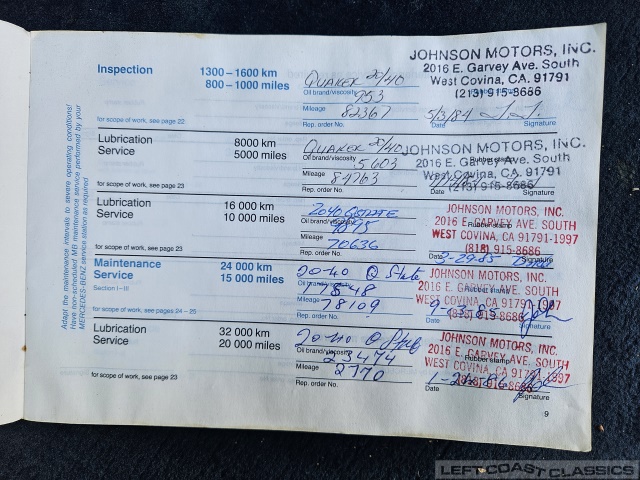 Adapt the maintenance intervals to severe operating conditions!
Have non-scheduled MB maintenance service performed by your
MERCEDES-BENZ service station as required
Inspection 1300–1600 km
800–1000 miles
for scope of work, see page 22
QUAKER 20/40
Oil brand/viscosity
953
Mileage
82367
Rep. order No.
JOHNSON MOTORS, INC.
2016 E. Garvey Ave. South
West Covina, CA. 91791
(213) 915-8686
5/3/84
Date
Signature
Lubrication 8000 km
Service 5000 miles
for scope of work, see page 23
QUAKER 20/40
Oil brand/viscosity
5603
Mileage
84763
Rep. order No.
JOHNSON MOTORS, INC.
2016 E. Garvey Ave. South
Rubber stamp
West Covina, CA. 91791
(213) 915-8686
Date
Signature
Lubrication 16 000 km
Service 10 000 miles
for scope of work, see page 23
2040 QSTATE
Oil brand/viscosity
Mileage
70636
Rep. order No.
JOHNSON MOTORS, INC.
2016 E. GARVEY AVE. SOUTH
Rubber stamp
WEST COVINA, CA. 91791-1997
(818) 915-8686
Date
Signature
Maintenance 24 000 km
Service 15 000 miles
Section I–III
for scope of work, see pages 24 – 25
20-40 Q State
Oil brand/viscosity
Mileage
78109
Rep. order No.
JOHNSON MOTORS, INC.
2016 E. GARVEY AVE. SOUTH
Rubber stamp
WEST COVINA, CA. 91791-1997
(818) 915-8686
Date
Signature
Lubrication 32 000 km
Service 20 000 miles
for scope of work, see page 23
20-40 Q State
Oil brand/viscosity
23474
Mileage
2770
Rep. order No.
JOHNSON MOTORS, INC.
2016 E. GARVEY AVE. SOUTH
Rubber stamp
WEST COVINA, CA. 91791-1997
(818) 915-8686
Date
Signature
9
LEFT COAST CLASSICS